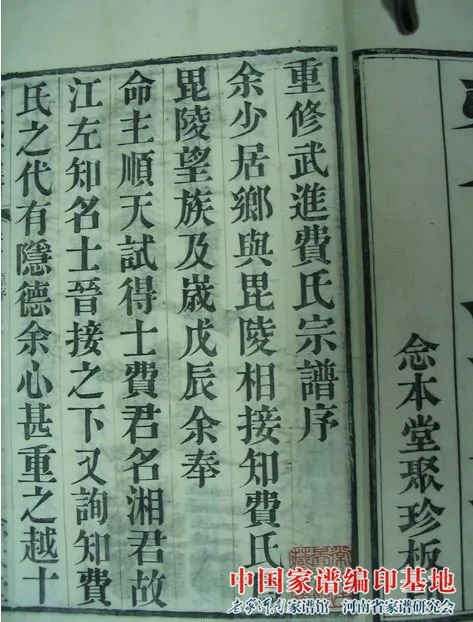 重修武進費氏宗譜序
余少居鄉與毘陵相接知費氏
毘陵望族及嵗戊辰余奉
命主順天試得士費君名湘君故
江左知名士晉接之下又詢知費
氏之代有隱德余心甚重之越十
念本堂聚珍板
中国家谱编印基地
家谱馆 河南省家谱研究会